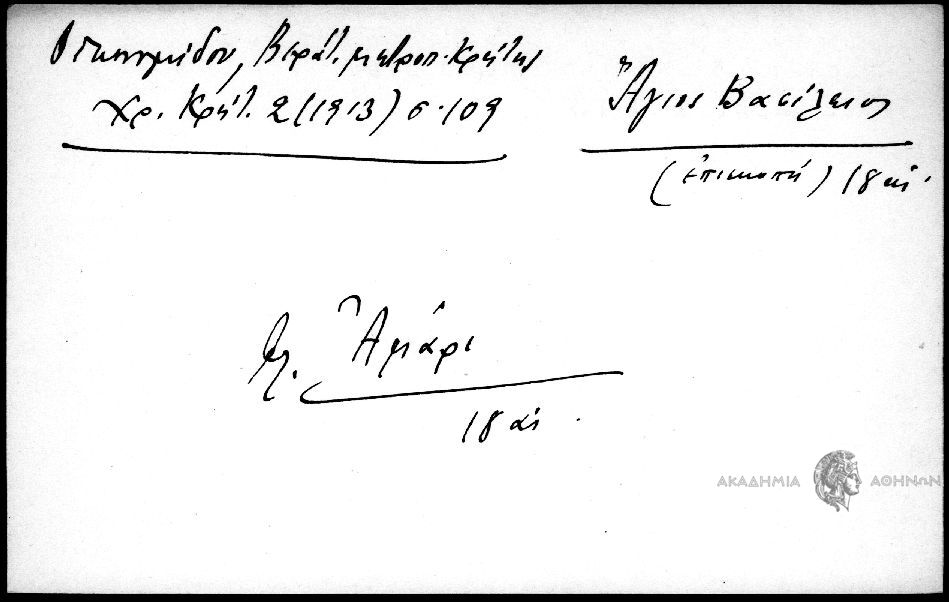 Οικονομίδου, Βεράτ. μητροπ. Κρήτης
Χρ. Κρήτ. 2 (1913) σ. 109
Ἅγιος Βασίλειος
(ἐπισκοπή) 18 αἰ.
Ἀμάρι
18 αἰ.
ΑΚΑΔΗΜΙΑ ΑΘΗΝΩΝ